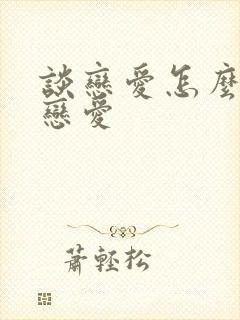 談戀愛怎麼
戀愛
蕭輕松